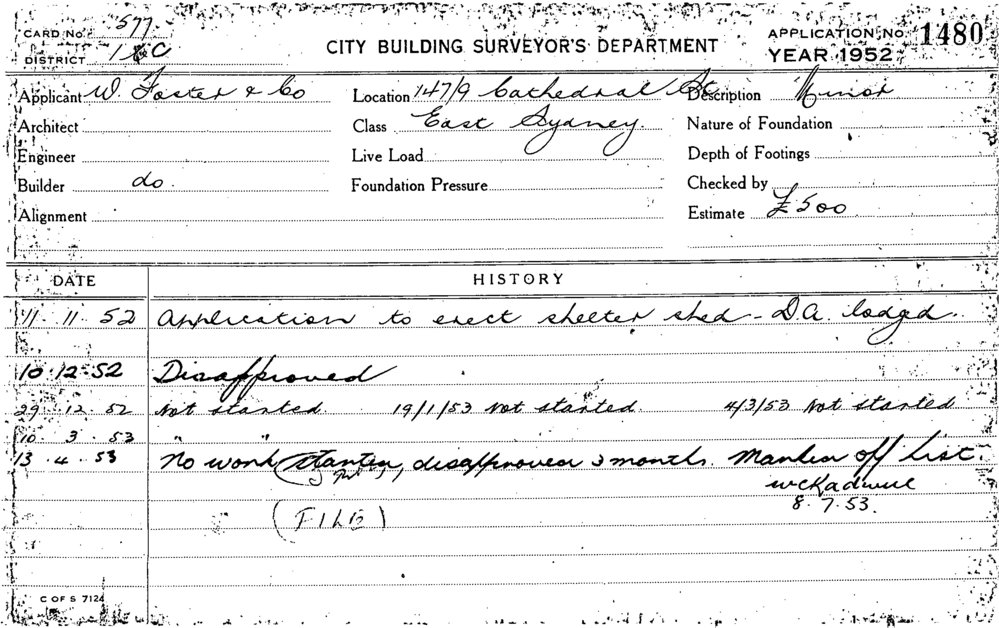 CARD No. 577
DISTRICT
CITY BUILDING SURVEYOR'S DEPARTMENT
APPLICATION No. 1480
YEAR 1952
Applicant W. Foster & Co Location 147/9 Cathedral St Description Minor
Architect Class East Sydney Nature of Foundation
Engineer Live Load Depth of Footings
Builder do. Foundation Pressure Checked by
Alignment Estimate £500
DATE HISTORY
11. 11. 52 Application to erect shelter shed - D.A. lodged.
10.12.52 Disapproved
29. 12. 52 Not started. 19/1/53 Not started. 4/3/53 Not started
10. 3. 53 " "
13. 4. 53 No work started, disapproved 3 months. Marked off List.
8. 7. 53.
(FILE)
C OF S 7124